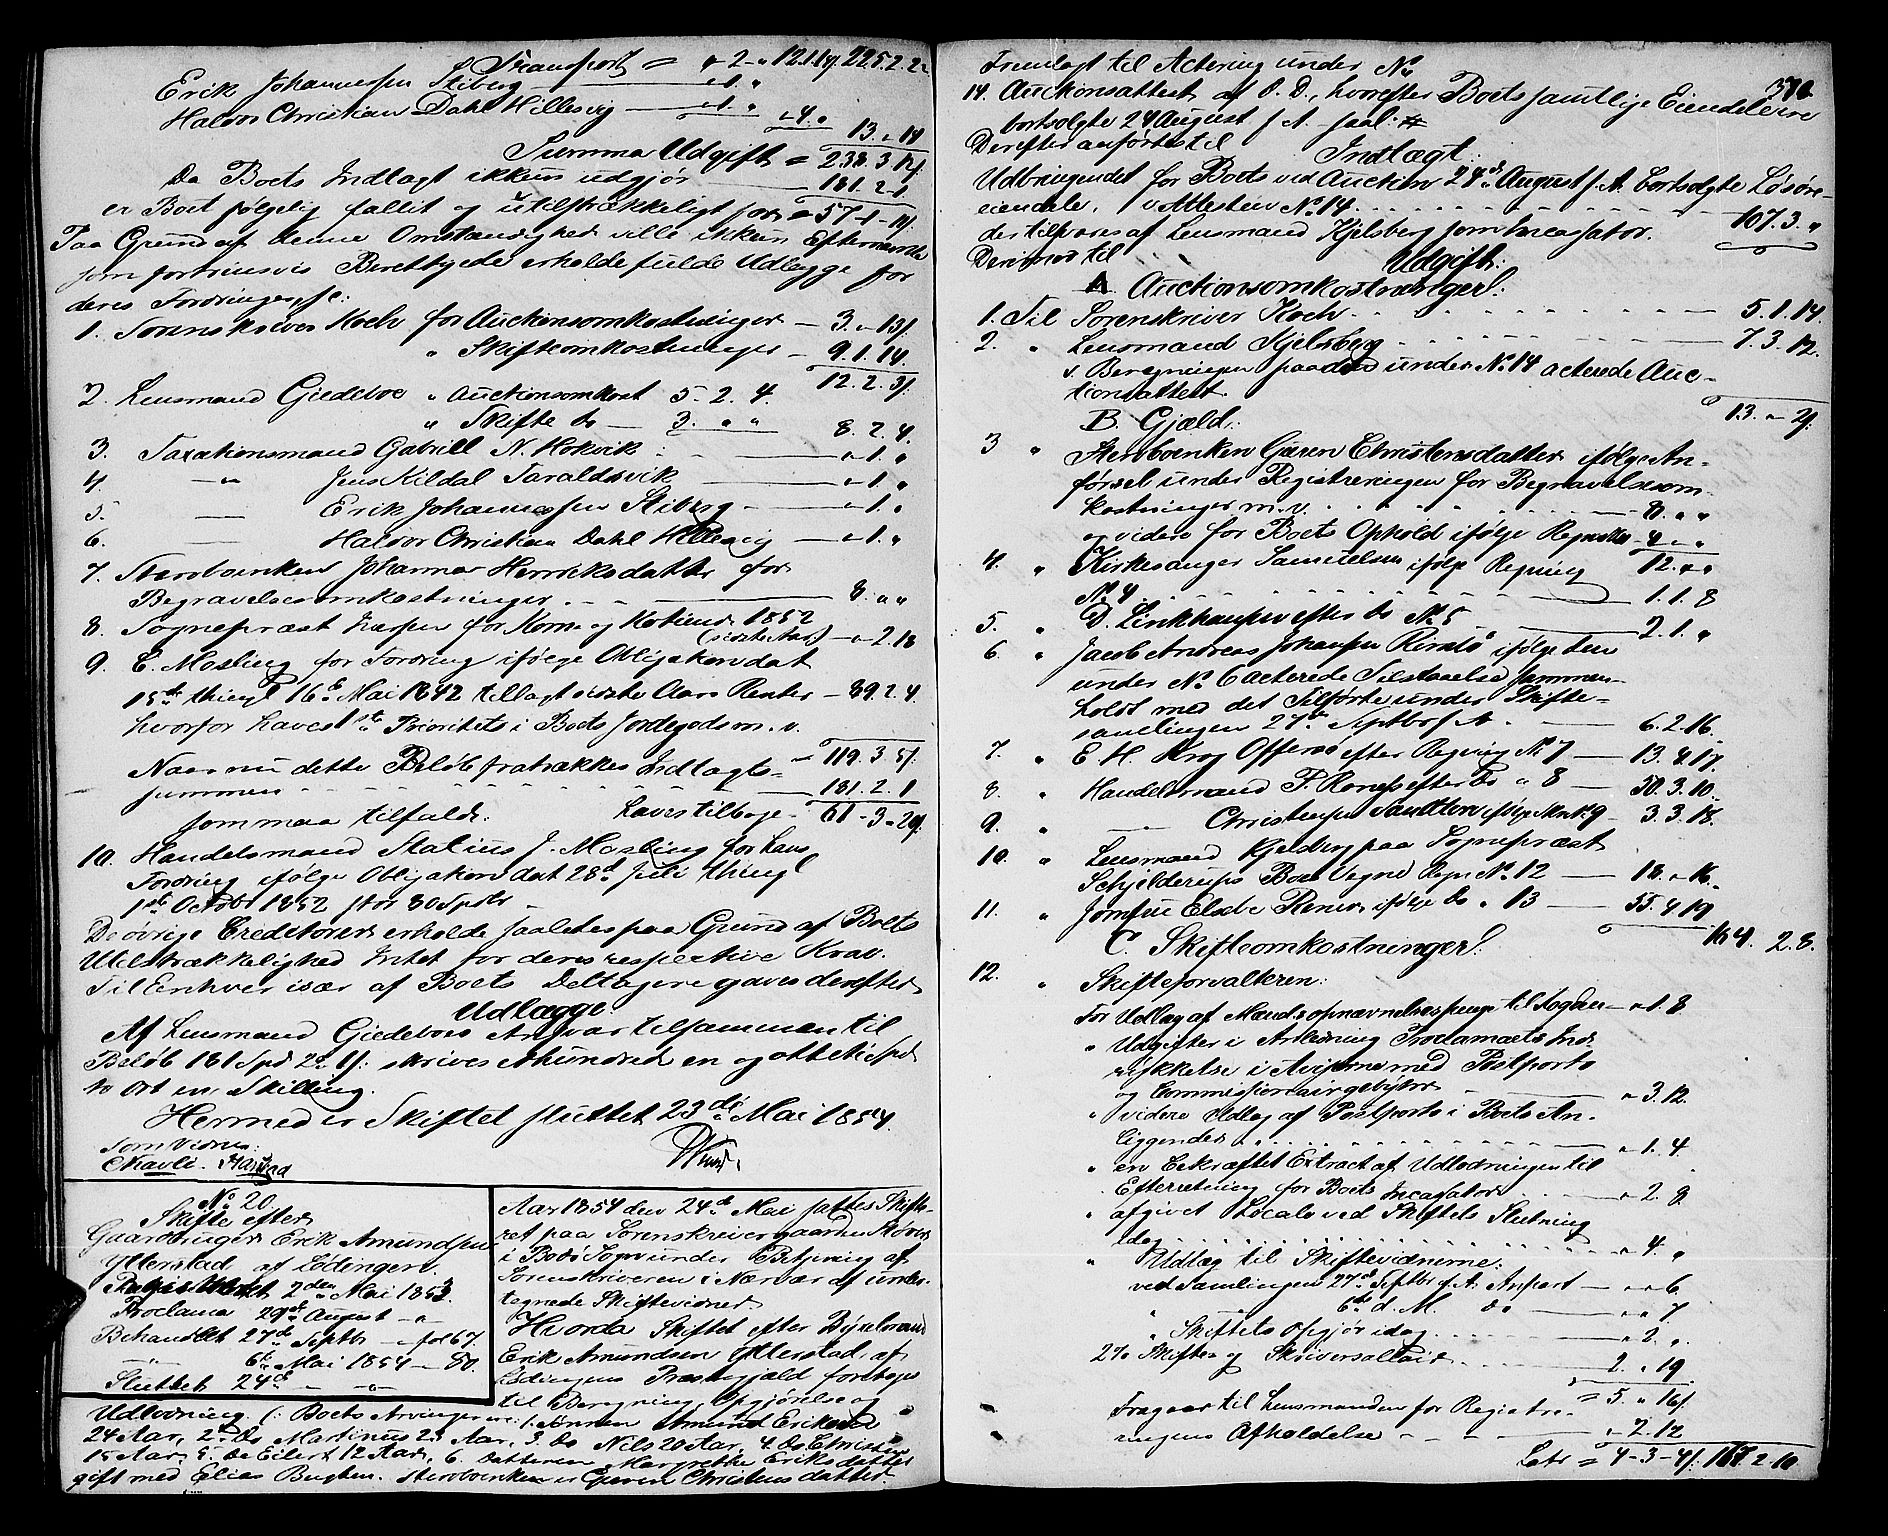 Transport = " 2 " 121.14. 225.2.22
Erik Johannessen Stiberg — " 1. "
Haldor Christian Dahl Hillesvig — " 1. " " 4. " 13. " 14
Summa Udgift = 238. 3. 12
Da Boets Indtægt ikkun udgjør — 181. 2. 1.
er Boet følgelig fallit og utilstrækkeligt for = 57-1-11
Paa Grund af denne Omstændighed ville ikkun Efternævnte
som fortrinsvis Berettigede erholde fulde Udlægge for
deres Fordringer, s.:
1. Sorenskriver Koch for Auctionsomkostninger — 3. " 13
" Skifteomkostninger — 9. 1. 14.
12. 2. 3
2. Lensmand Giedeboe " Auctionsomkost 5. 2. 4.
" Skifte do — 3. " " 8. 2. 4.
3. Taxationsmand Gabriel N. Hokvik — " 1. "
4. — " — Jens Kildal Taraldsvik — " 1. "
5. — Erik Johannessen Stiberg — " 1. "
6. — Haldor Christian Dahl Hillesvig — " 1. "
7. Sterboenken Johanna Henriksdatter for
Begravelsesomkostninger — 8. " "
8. Sogneprest for Korn og 1852
(sidste Aar) — " 2. 18
9. C. Mosling for Fordring ifølge Obligation dat
15de thingl 16de Mai 1842 tillagt sidste Aars Renter — 89. 2. 4.
hvorfor haves 1ste Prioritets i Boets Jordegods m. v.
Naar nu dette Beløb fratrækkes Indtægts- — 119. 3. 5
summen — 181. 2. 1
som maa tilfalde. haves tilbage — 61-3-20
10. Handelsmand Statius J. Mosling for hans
Fordring ifølge Obligation dat 28de Juli thingl
1ste Octobr 1852 stor 80 Spdr
De øvrige Creditorer erholde saaledes paa Grund af Boets
Utilstrækkelighed Intet for deres respective Krav.
Til Enhver især af Boets Deltagere gaves derefter
Udlægge:
Af Lensmand Giedeboes Ansvar tilsammen til
Beløb 181 Spd 2 1 : skrives Ethundrede en og ottetti Spd
to Ort en Skilling.
Hermed er Skiftet sluttet 23de Mai 1854.
Som Vidner:
No 20
Skifte efter
Gaardbruger Erik Amundsen
Ytterstad af Lødingen.
Registreret 2den Mai 1853.
Proclama 29de August — " —
Behandlet 27de Septbr — fol 67.
— " — 6te Mai 1854 — 80.
Sluttet 24de — " —
Aar 1854 den 24de Mai sattes Skifte-
ret paa Sorenskrivergaarden Støver
i Bodø Sogn under Betjening af
Sorenskriveren i Nærvær af under-
tegnede Skiftevidner
Hvorda Skiftet efter Bøxelmand
Erik Amundsen Ytterstad af
Lødingens Præstegjæld foretoges
til Beregning, Opgjørelse og
Udlodning. (: Boets Arvinger ere: 1. Sønnen Amund Eriksen
24 Aar, 2. Do Martinus 23 Aar, 3. Do Nils 20 Aar, 4. Do Christen
15 Aar, 5. Do Eilert 12 Aar, 6. Datteren Margrethe Eriksdatter
gift med Elias Bugten. Sterboenken er Gjæren Christensdatter
Fremlagt til Actering under No
14. Auctionsattest af O. D., hvorefter Boets samtlige Eiendele ere
bortsolgte 24 August f. A.
Derefter anførtes til
Indtægt:
Udbringendet for Boets ved Auction 24de August f. A. bortsolgte Løsøre-
eiendele, v. Attesten No 14
der tilsvares af Lensmand Kjelsberg som Incassator. — 167. 3. "
Derimod til
Udgift:
A. Auctionsomkostninger:
1. Til Sorenskriver Koch — 5. 1. 14.
2. " Lensmand Kjelsberg — 7. 3. 12.
v. Beregningen paa den under No 14 acterede Auc-
tionsattest
13. " 2
B. Gjæld:
3 " Sterboenken Gjæren Christensdatter ifølge An-
førsel under Registreringen for Begravelsesom-
kostninger m. v. — 8. " "
og videre for Boets Ophold ifølge — 4. " "
12. " "
4. " Kirkesanger Samuelsen ifølge Regning
No 4 — 1. 1. 8
5. " D. efter do No 5 — 2. 1. "
6. " Jacob Andreas Johansen ifølge den
under No 6 acterede Tilstaaelse sammen-
holdt med det Tilførte under Skifte-
samlingen 27de Septbr f. A. — 6. 2. 16.
7. " E. H. Krog Offersø efter Regning No 7 — 13. 4. 17.
8. " Handelsmand P. efter do " 8 — 50. 3. 10.
9. " — Christensen Sandtorv ifølge 9 — 3. 3. 18.
10. " Lensmand Kjelsberg paa Sogneprest
Schjelderups Boes Vegne Regn No 12 — 18. " 16.
11. " Jomfru Elsebe ifølge do " 13 — 55. 4. 19
164. 2. 8.
C. Skifteomkostninger:
12. " Skifteforvalteren:
For Udlæg af Mandsopnævnelsespenge til Fogden — " 1. 8
" Udgifter i Anledning Proclamaets Ind-
rykkelse i Aviserne med Postporto
og Commissionairgebyhr — " 3. 12.
" videre Udlæg af Postporto i Boets An-
liggender — " 1. 4
" en bekræftet Extract af Udlodningen til
Efterretning for Boets Incassator — " 2. 8
" afgivet Locale ved Skiftets Slutning
idag — " 4. "
" Udlæg til Skiftevidnerne:
ved Samlingen 27de Septbr f. A. Anpart — " " 6
" 6te d. M. do — " " 7
" Skiftets Opgjør idag — " 2. "
2% Skifte og Skriversallair — 2. " 19
= 5. " 16
Fragaar til Lensmanden for Registre-
ringens Afholdelse — " 2. 12
Lats = 4-3-4 167. 2. 10